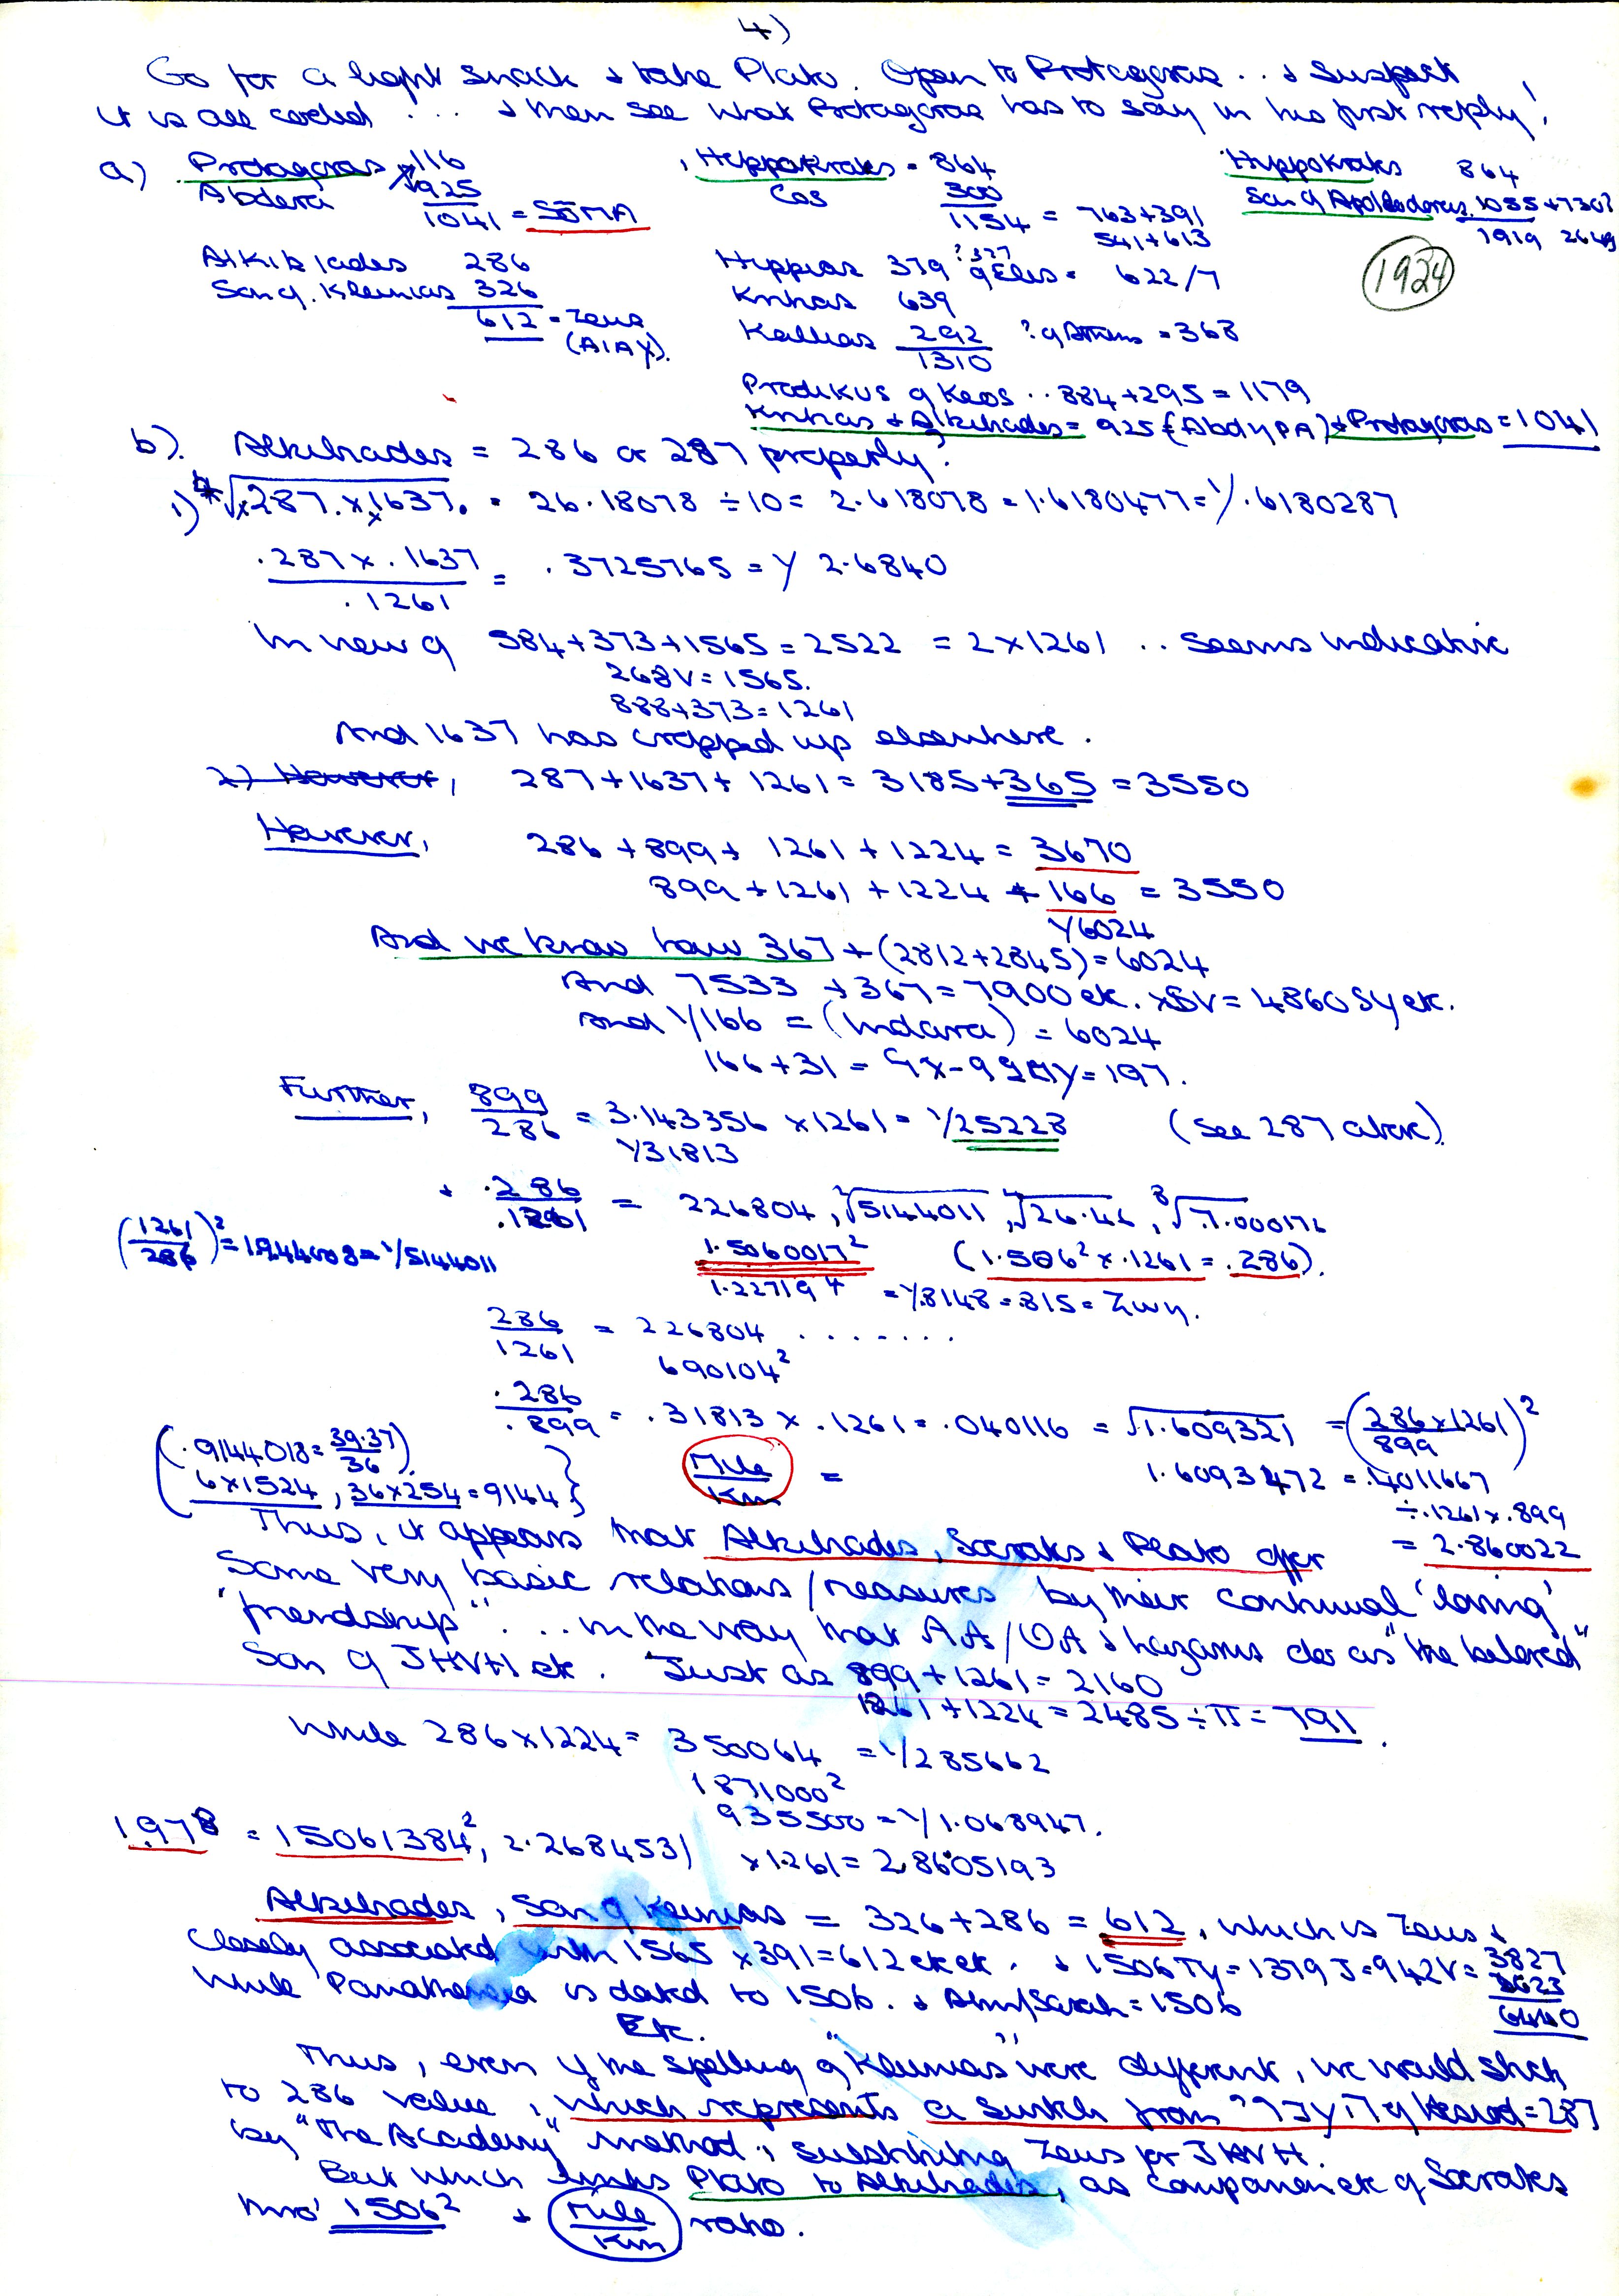 4)
Go for a light snack & take Plato. Open to Protagoras .. & Suspect
it is all coded ... & then see what Protagoras has to say in his first reply!
a) Protagoras 116
Abdera 925
1041 = SŌMA
Hippokrates = 864
Cos 300
1154 = 763+391
541+613
Hippokrates 864
Son of Apollodoros. 1055 +730?
1919 2649
Alkibiades 286
Son of. Kleinias 326
612 = Zeus
(AIAX).
Hippias 379 ?327 of Elis = 622/7
Kritias 639
Kallias 292 ? of Athens = 368
1310
1924
Prodikus of Keos .. 884+295 = 1179
Kritias & Alkibiades = 925 = (Abdypa) & Protagoras = 1041
b). Alkibiades = 286 or 287 properly?
1) √.287. x 1637. = 26.18078 ÷10 = 2.618078 = 1.6180477 = Y .6180287
.287 x .1637 = .3725765 = Y 2.6840
.1261
In view of 584+373+1565 = 2522 = 2x1261 .. seems indicative
268V = 1565.
888+373 = 1261
And 1637 has cropped up elsewhere.
2) However, 287+1637+1261 = 3185+365 = 3550
However, 286 +899+ 1261 +1224 = 3670
899 +1261 +1224 + 166 = 3550
Y6024
And we know how 367 + (2812+2845) = 6024
And 7533 +367 = 7900 etc. x SV = 4860 Sy etc.
And Y166 = (Indara) = 6024
166 + 31 = = 197.
Further, 899 = 3.143356 x1261 = Y25228 (see 287 above)
286 Y31813
& .286 = 226804, √5144011, √26.46, 8√7.000176
.1261
(1261)² = 1944008 = Y5144011
286
1.5060017² (1.506² x .1261 = .286).
1.22719 4 = Y.8148 = .815 = Zwy.
286 = 226804 .......
1261 690104²
.286 = .31813 x .1261 = .040116 = √1.609321 = (286x1261)²
.899 899
(.9144018 = 39.37)
36
6x1524, 36x254 = 9144
Mile = 1.6093472 = .4011667
Km ÷.1261 x .899
= 2.860022
Thus, it appears that Alkibiades, Socrates & Plato offer
Some very basic relations/measures by their continual 'loving'
"friendship" ... in the way that AA/OA & hazarus does as "the beloved"
Son of JHVH etc. Just as 899+1261 = 2160
1261+1224 = 2485 ÷ π = 791.
While 286x1224 = 350064 = Y285662
1871000²
935500 = Y1.068947.
x1.261 = 2.8605193
1.978 = 15061384², 2.2684531
Alkibiades, Son of Kleinias = 326+286 = 612, which is Zeus &
closely associated with 1565 x391 = 612 etc etc. & 1506 Ty = 1379 J = 942V = 3827
2623
6440
While Panathenea is dated to 1506. & Abm/Sarah = 1506
Etc.
Thus, even if the spelling of "Kleinias" were different, we would stick
to 286 value, which represents a switch from of Hesiod = 287
by "The Academy" method, substituting Zeus for JHVH.
But which links Plato to Alkibiades, as companion etc of Socrates
thro' 1506² & Mile ratio.
Km